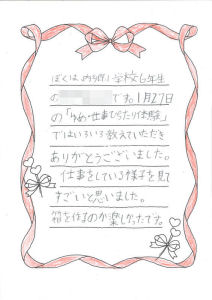 ぼくは 小学校6年生
の です。1月27日
の「ゆめ・仕事ぴったり体験」
ではいろいろ教えていただき
ありがとうございました。
仕事をしている様子を見て
すごいと思いました。
箱を作るのが楽しかったです。